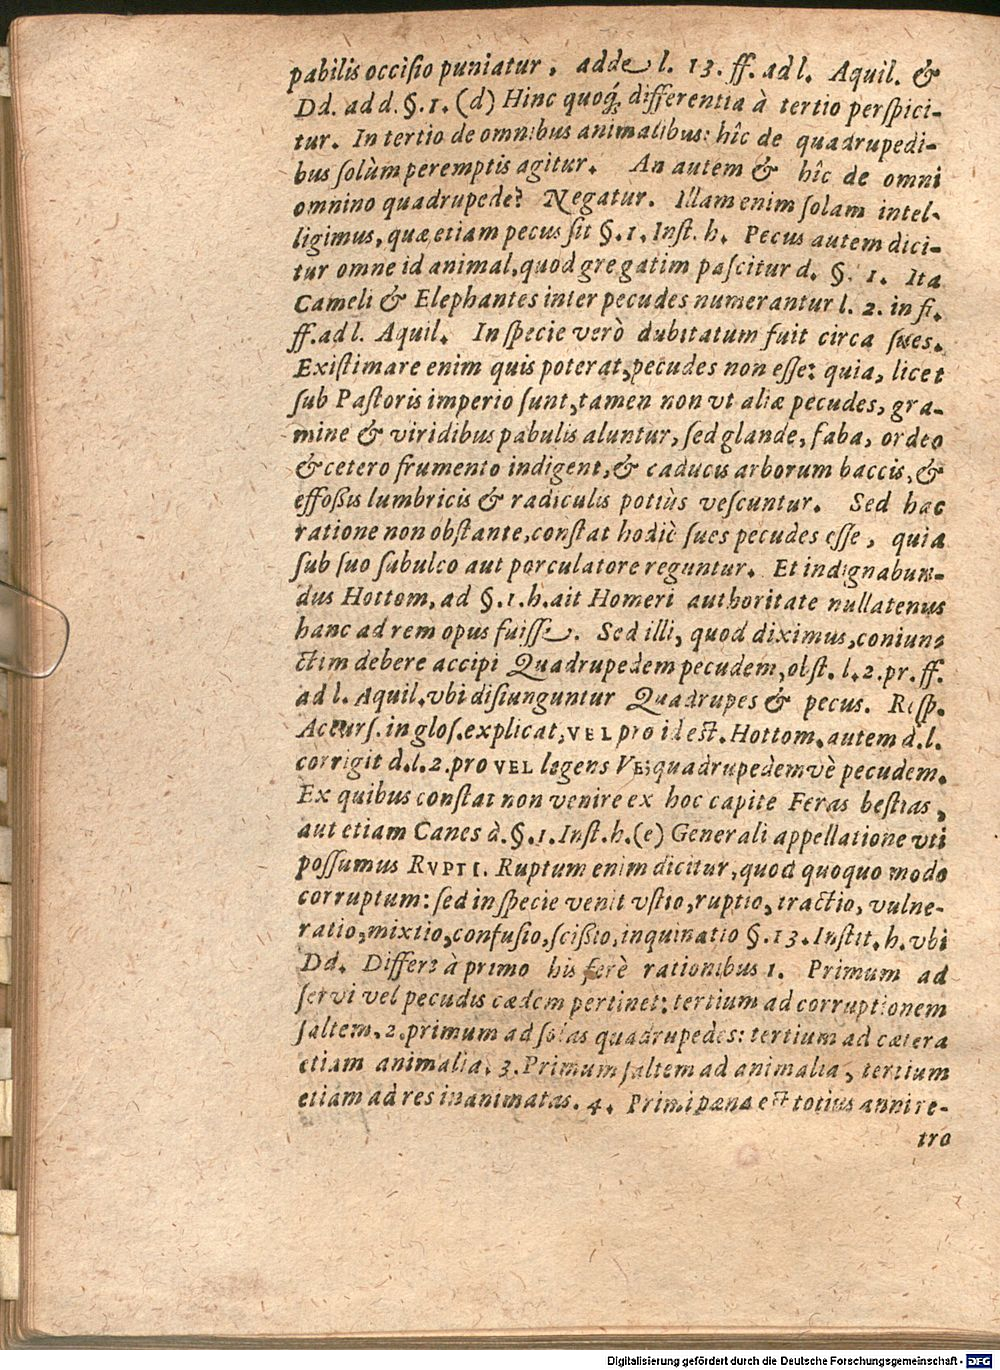 pabilis occiſio puniatur, adde l. 13. ff. ad l. Aquil. &
Dd. ad d. §. 1. (d) Hinc quoq́; differentia à tertio perſpici-
tur. In tertio de omnibus animalibus: hîc de quadrupedi-
bus ſolùm peremptis agitur. An autem & hîc de omni
omnino quadrupede? Negatur. Illam enim ſolam intel-
ligimus, quæ etiam pecus ſit §. 1. Inſt. h. Pecus autem dici-
tur omne id animal, quod gregatim paſcitur d. §. 1. Ita
Cameli & Elephantes inter pecudes numerantur l. 2. in fi.
ff. ad l. Aquil. In ſpecie verò dubitatum fuit circa ſues.
Exiſtimare enim quis poterat, pecudes non eſſe: quia, licet
ſub Paſtoris imperio ſunt, tamen non vt aliæ pecudes, gra-
mine & viridibus pabulis aluntur, ſed glande, faba, ordeo
& cetero frumento indigent, & caducis arborum baccis, &
effoßis lumbricis & radiculis potiùs veſcuntur. Sed hac
ratione non obſtante, conſtat hodiè ſues pecudes eſſe, quia
ſub ſuo ſubulco aut porculatore reguntur. Et indignabun-
dus Hottom. ad §. 1. h. ait Homeri authoritate nullatenus
hanc ad rem opus fuiſſe. Sed illi, quod diximus, coniun-
ctim debere accipi Quadrupedem pecudem, obſt. l. 2. pr. ff.
ad l. Aquil. vbi diſiunguntur Quadrupes & pecus. Reſp.
Accurſ. in gloſ. explicat, VEL pro id eſt. Hottom. autem d. l.
corrigit d. l. 2. pro VEL legens VE: quadrupedemvè pecudem.
Ex quibus conſtat non venire ex hoc capite Feras beſtias,
aut etiam Canes d. §. 1. Inſt. h. (e) Generali appellatione vti
poſſumus RVPTI. Ruptum enim dicitur, quod quoquo modo
corruptum: ſed in ſpecie venit vſtio, ruptio, tractio, vulne-
ratio, mixtio, confuſio, ſcißio, inquinatio §. 13. Inſtit. h. vbi
Dd. Differt à primo his ferè rationibus 1. Primum ad
ſervi vel pecudis cædem pertinet: tertium ad corruptionem
ſaltem. 2. primum ad ſolas quadrupedes: tertium ad cætera
etiam animalia. 3. Primum ſaltem ad animalia, tertium
etiam ad res inanimatas. 4. Primi pæna eſt totius anni re-
tro
Digitalisierung gefördert durch die Deutsche Forschungsgemeinschaft - DFG